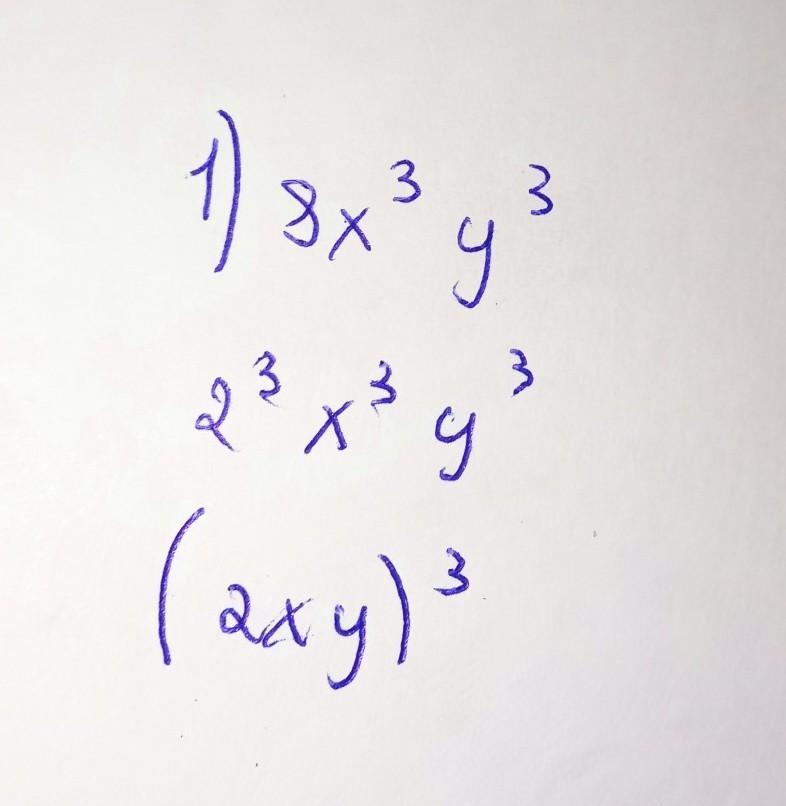 1) 8x³ y³
2³ x³ y³
(2xy)³